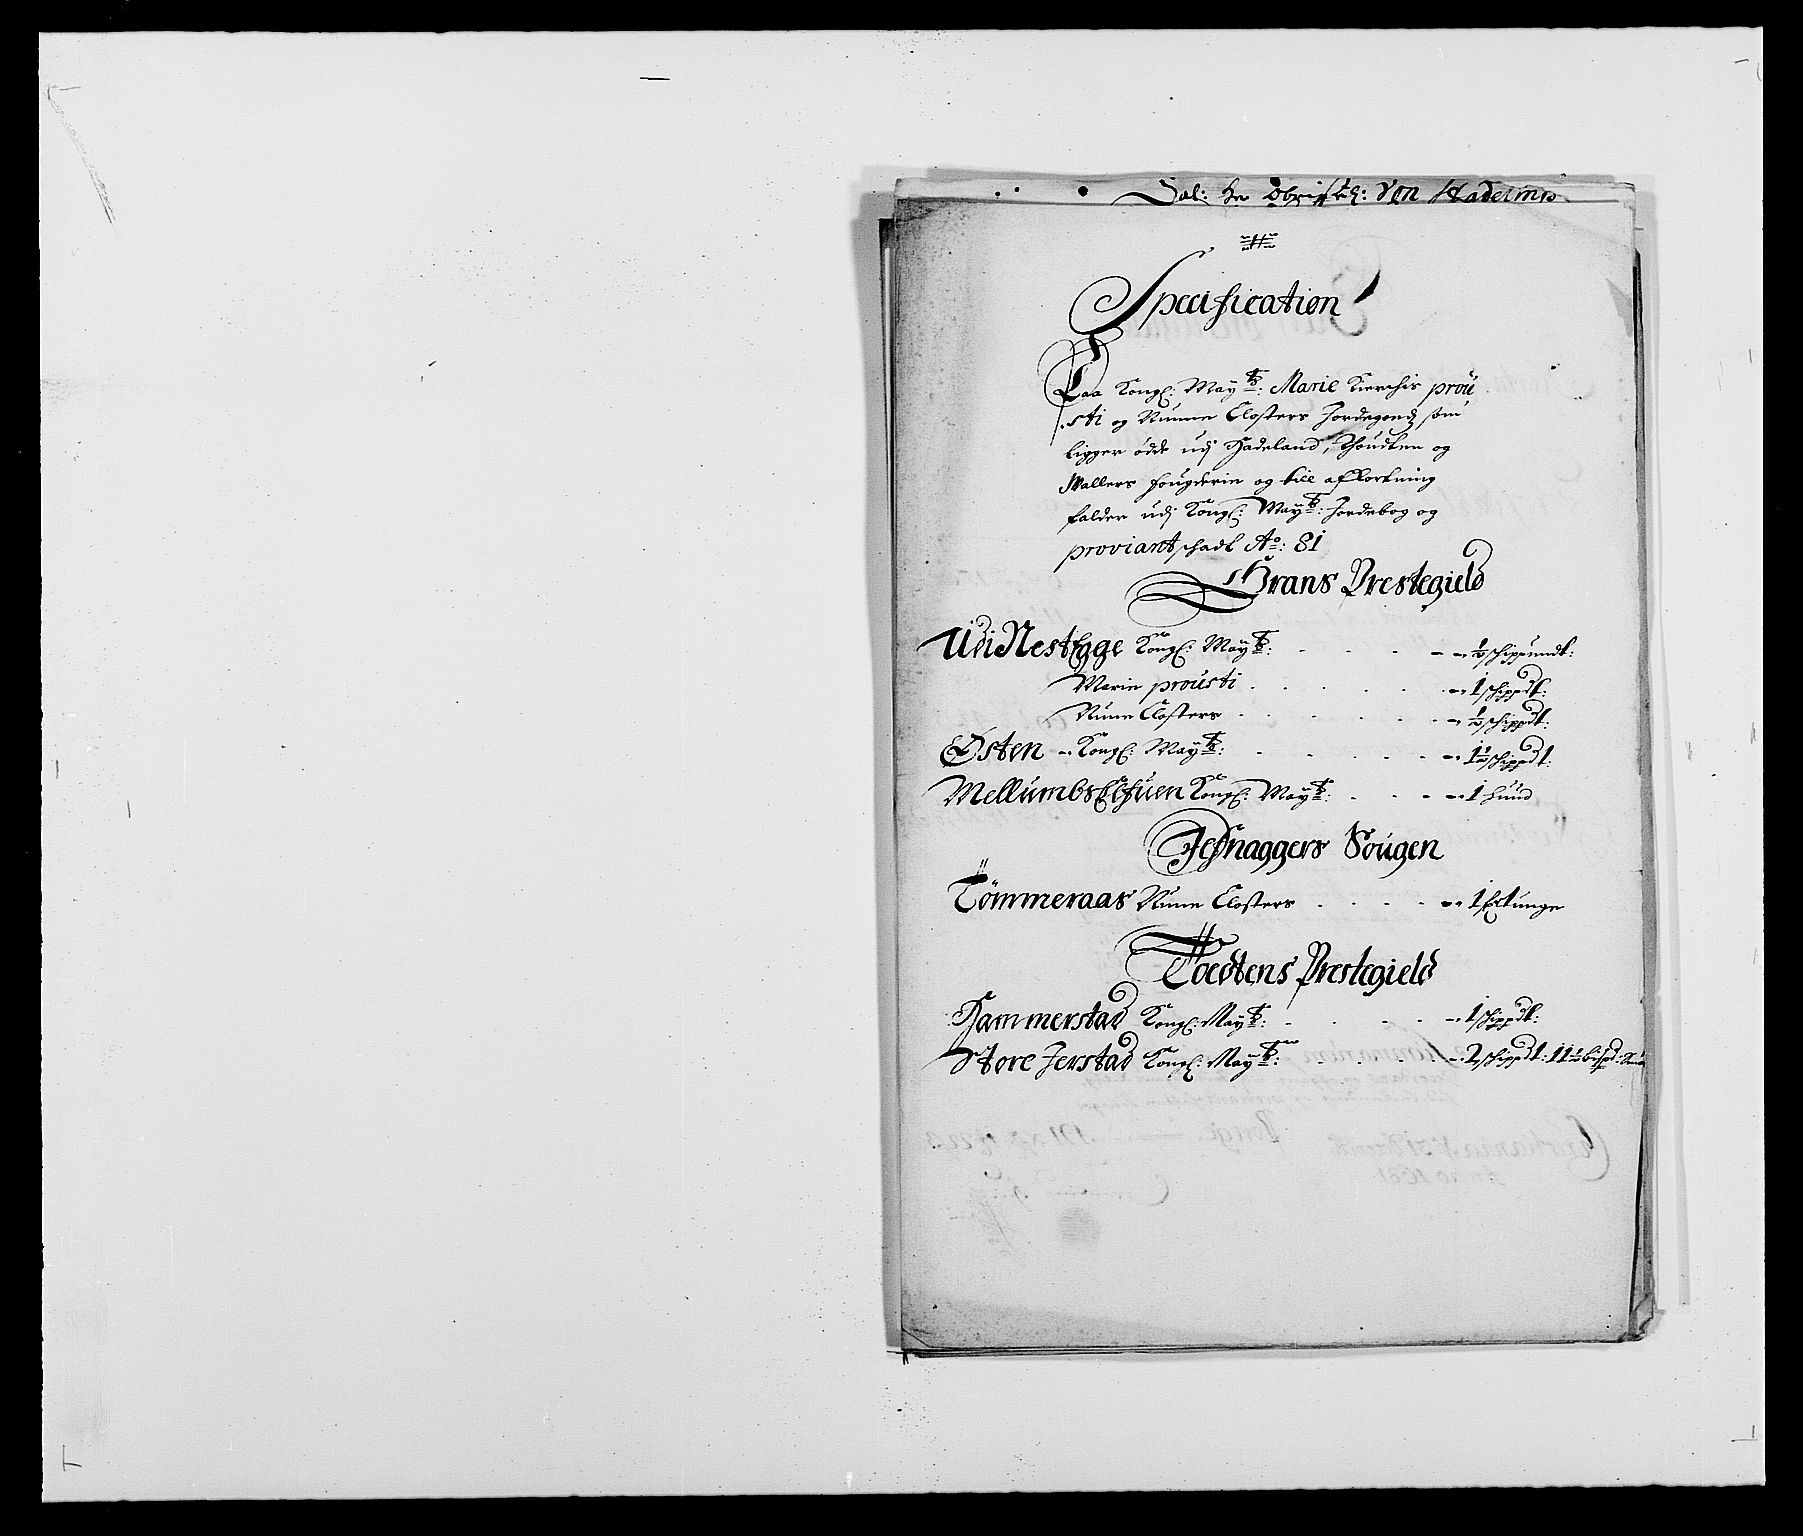 Sal: hr Obriste: Von Stadelmo
Specification
Paa Kongl: Maytz: Marie Kierchis prou
sti og Nunne Closters Jordegods som
ligger ødde udj Hadeland, Thoudten og
Wallers fougderie og till affkortning
falder udj Kongl: Maytz: Jordebog og
proviantschadt Ao: 81
Grans Prestegield
Udi Nest Egge Kongl: Maytz: ½ schippundt:
Marie prousti 1 schippdt:
Nune Closters ½ schippdt:
Østen Kongl: Maytz: 1½ schippdt:
Mellumbs Elfuen Kongl: Maytz: 1 hund
Jefnaggers Sougen
Tömmeraas Nune Closters 1 Fr tunge
Toedtens Prestegield
Hammerstad Kongl: Maytz: 1 schippdt:
Store Jerstad Kongl: Maytz: 2 schippdt: 11½ bispd: